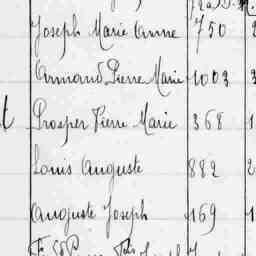 Joseph Marie Anne 750
Armand Pierre Marie 1003 3
t Prosper Pierre Marie 368 1
Louis Auguste 882 2
Auguste Joseph 169 1